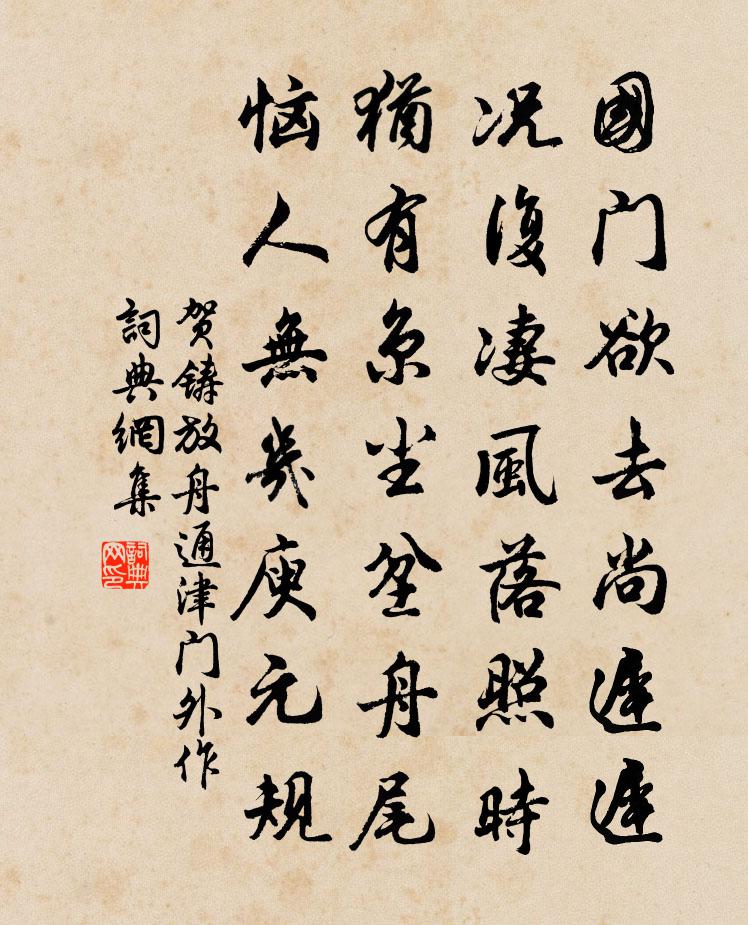 國门欲去尚遲遲
况復凄風落照時
猶有京尘坌舟尾
恼人無幾庾元规
贺鑄放舟通津门外作
詞典網集
詞典网印